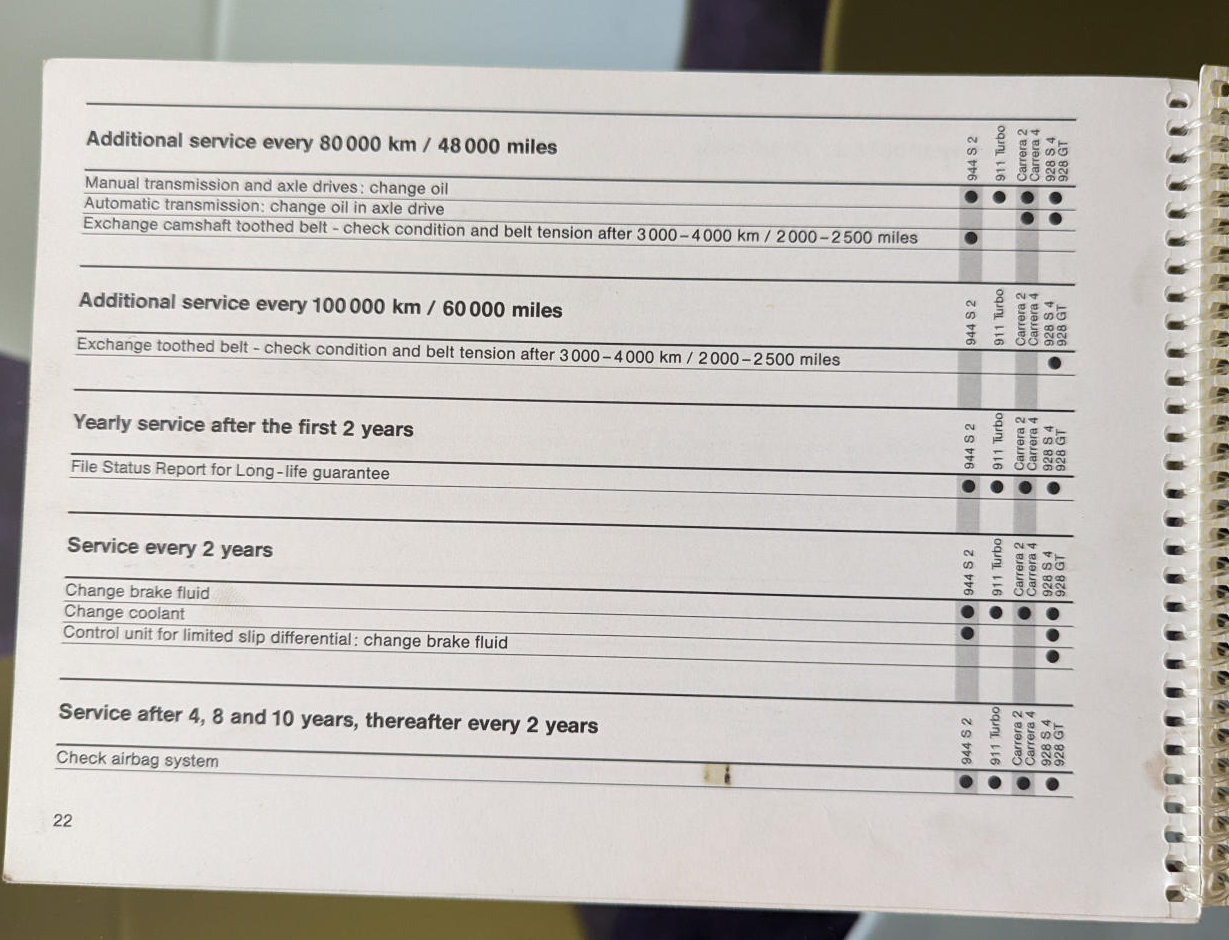 Additional service every 80 000 km / 48 000 miles
944 S 2
911 Turbo
Carrera 2
Carrera 4
928 S 4
928 GT
Manual transmission and axle drives: change oil
Automatic transmission: change oil in axle drive
Exchange camshaft toothed belt - check condition and belt tension after 3 000 – 4 000 km / 2 000 – 2 500 miles
Additional service every 100 000 km / 60 000 miles
944 S 2
911 Turbo
Carrera 2
Carrera 4
928 S 4
928 GT
Exchange toothed belt - check condition and belt tension after 3 000 – 4 000 km / 2 000 – 2 500 miles
Yearly service after the first 2 years
944 S 2
911 Turbo
Carrera 2
Carrera 4
928 S 4
928 GT
File Status Report for Long-life guarantee
Service every 2 years
944 S 2
911 Turbo
Carrera 2
Carrera 4
928 S 4
928 GT
Change brake fluid
Change coolant
Control unit for limited slip differential: change brake fluid
Service after 4, 8 and 10 years, thereafter every 2 years
944 S 2
911 Turbo
Carrera 2
Carrera 4
928 S 4
928 GT
Check airbag system
22